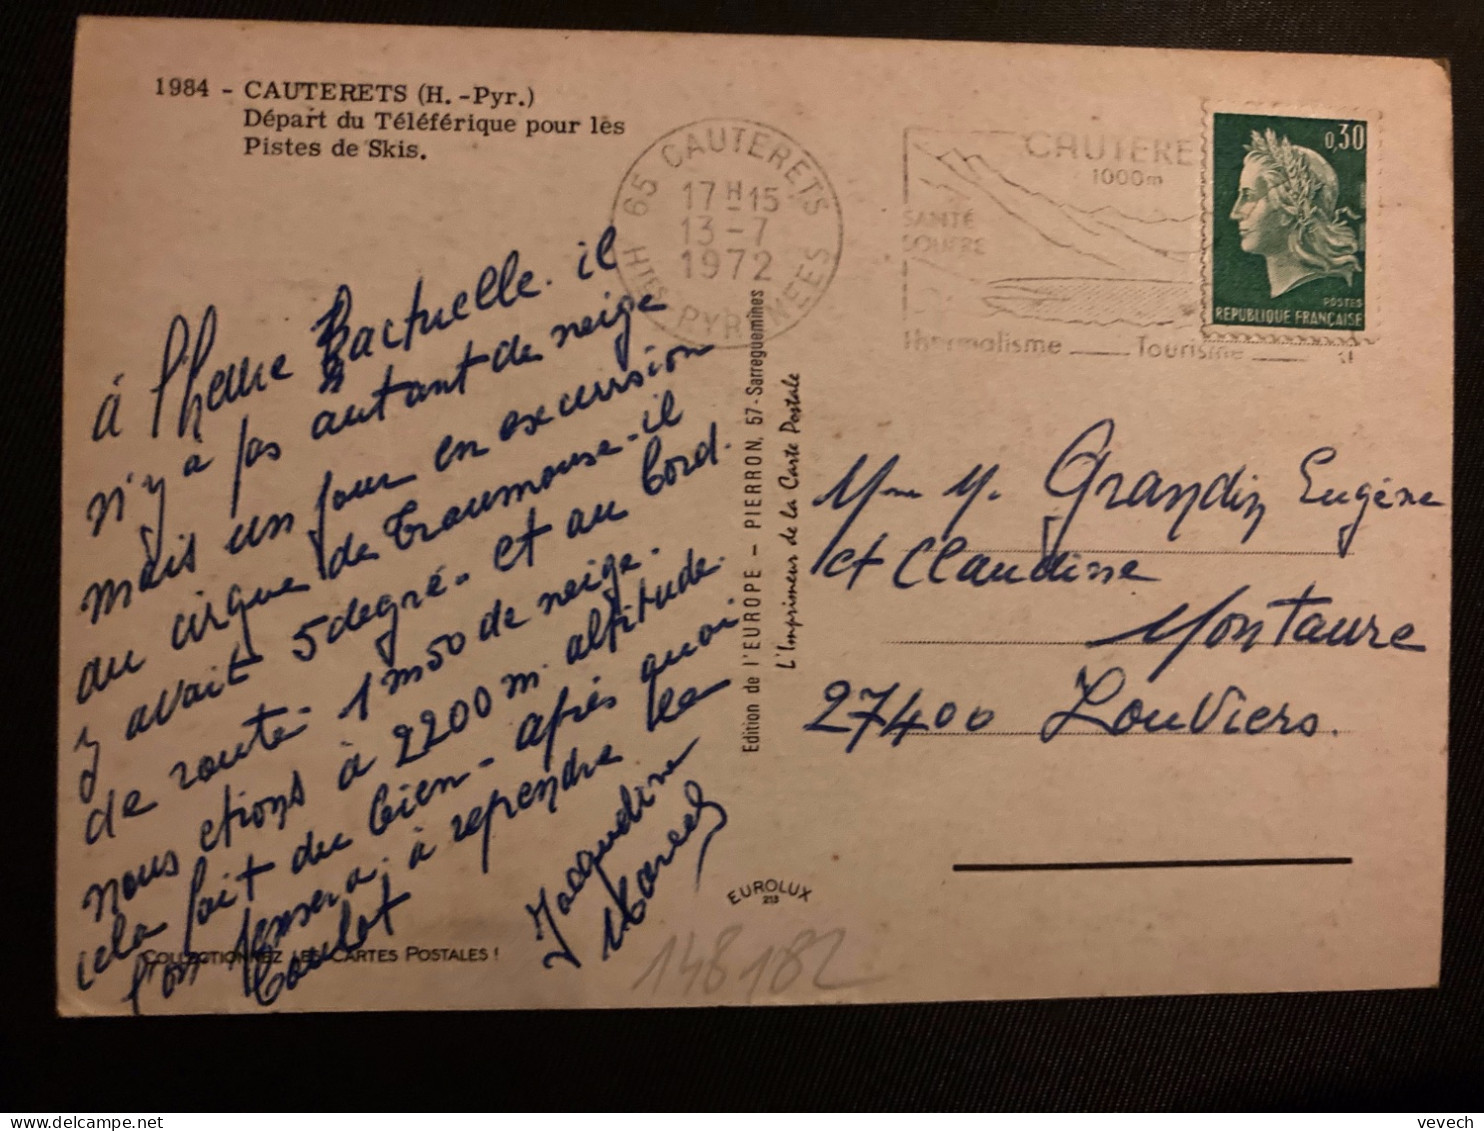 1984 - CAUTERETS (H. -Pyr.)
Départ du Téléférique pour lès
Pistes de Skis.
65 CAUTERETS
17H15
13-7
1972
HTES PYRENEES
CAUTERE
1000m
SANTÉ
SOUFRE
Thermalisme ___ Tourisme ___
0,30
POSTES
REPUBLIQUE FRANÇAISE
à l'heure actuelle. il
n'y à pas autant de neige
mais un jour en excursion
au cirque de Troumouse. il
y avait 5 degré. et au bord
de route 1m50 de neige.
nous etions à 2200 m. altitude.
cela fait du bien - après quoi
l'on pensera à reprendre le
boulot
Jacqueline
Marcel
Edition de l'EUROPE — PIERRON, 57-Sarreguemines
L'Imprimeur de la Carte Postale
Mme M. Grandin Eugéne
et Claudine
Montaure
27400 Louviers.
EUROLUX
COLLECTIONNEZ LES CARTES POSTALES !
148182
vevech